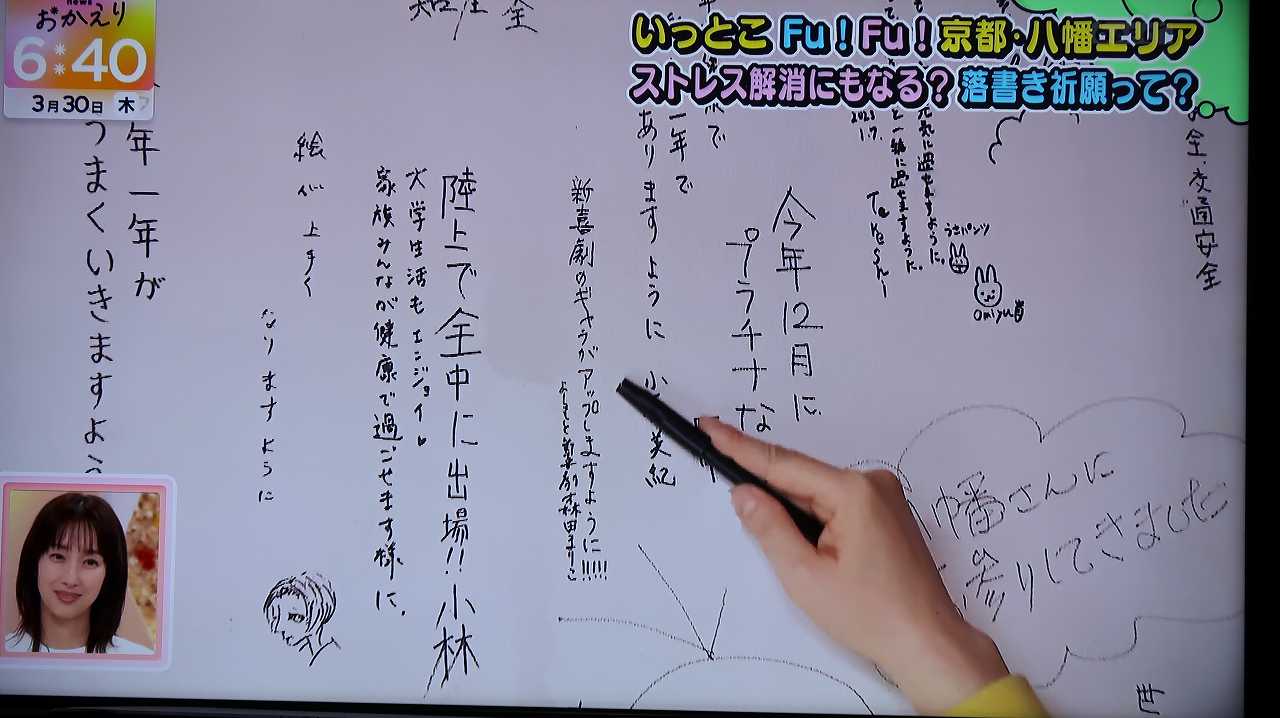 news
おかえり
6:40
3月30日 木
いっとこ Fu!Fu!京都・八幡エリア
ストレス解消にもなる?落書き祈願って?
全・交通安全
元気に過ごせますように。
と一緒に過ごせますように。
2023
1.7.
うさパンツ
Omiyu
今年12月に
プラチナな
一年で
ありますように 小
美紀
新喜劇のギャラがアップしますように!!!!!
よしもと新喜劇 森田まりこ
陸上で全中に出場!!小林
大学生活もエンジョイ♥
家族みんなが健康で過ごせます様に。
絵が上手く
なりますように
年一年が
うまくいきますよう
幡さんに
参りにてきました